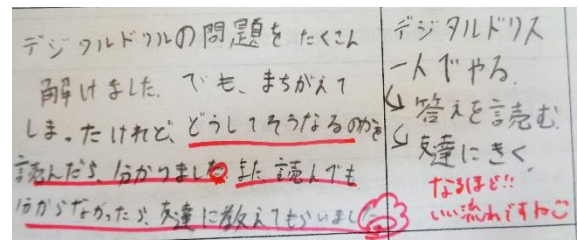 デジタルドリルの問題をたくさん
解けました。でも、まちがえて
しまったけれど、どうしてそうなるのかを
読んだら、分かりました。また読んでも
分からなかったら、友達に教えてもらいました
デジタルドリス
一人でやる。
↳答えを読む。
↳友達にきく
なるほど!!
いい流れですね